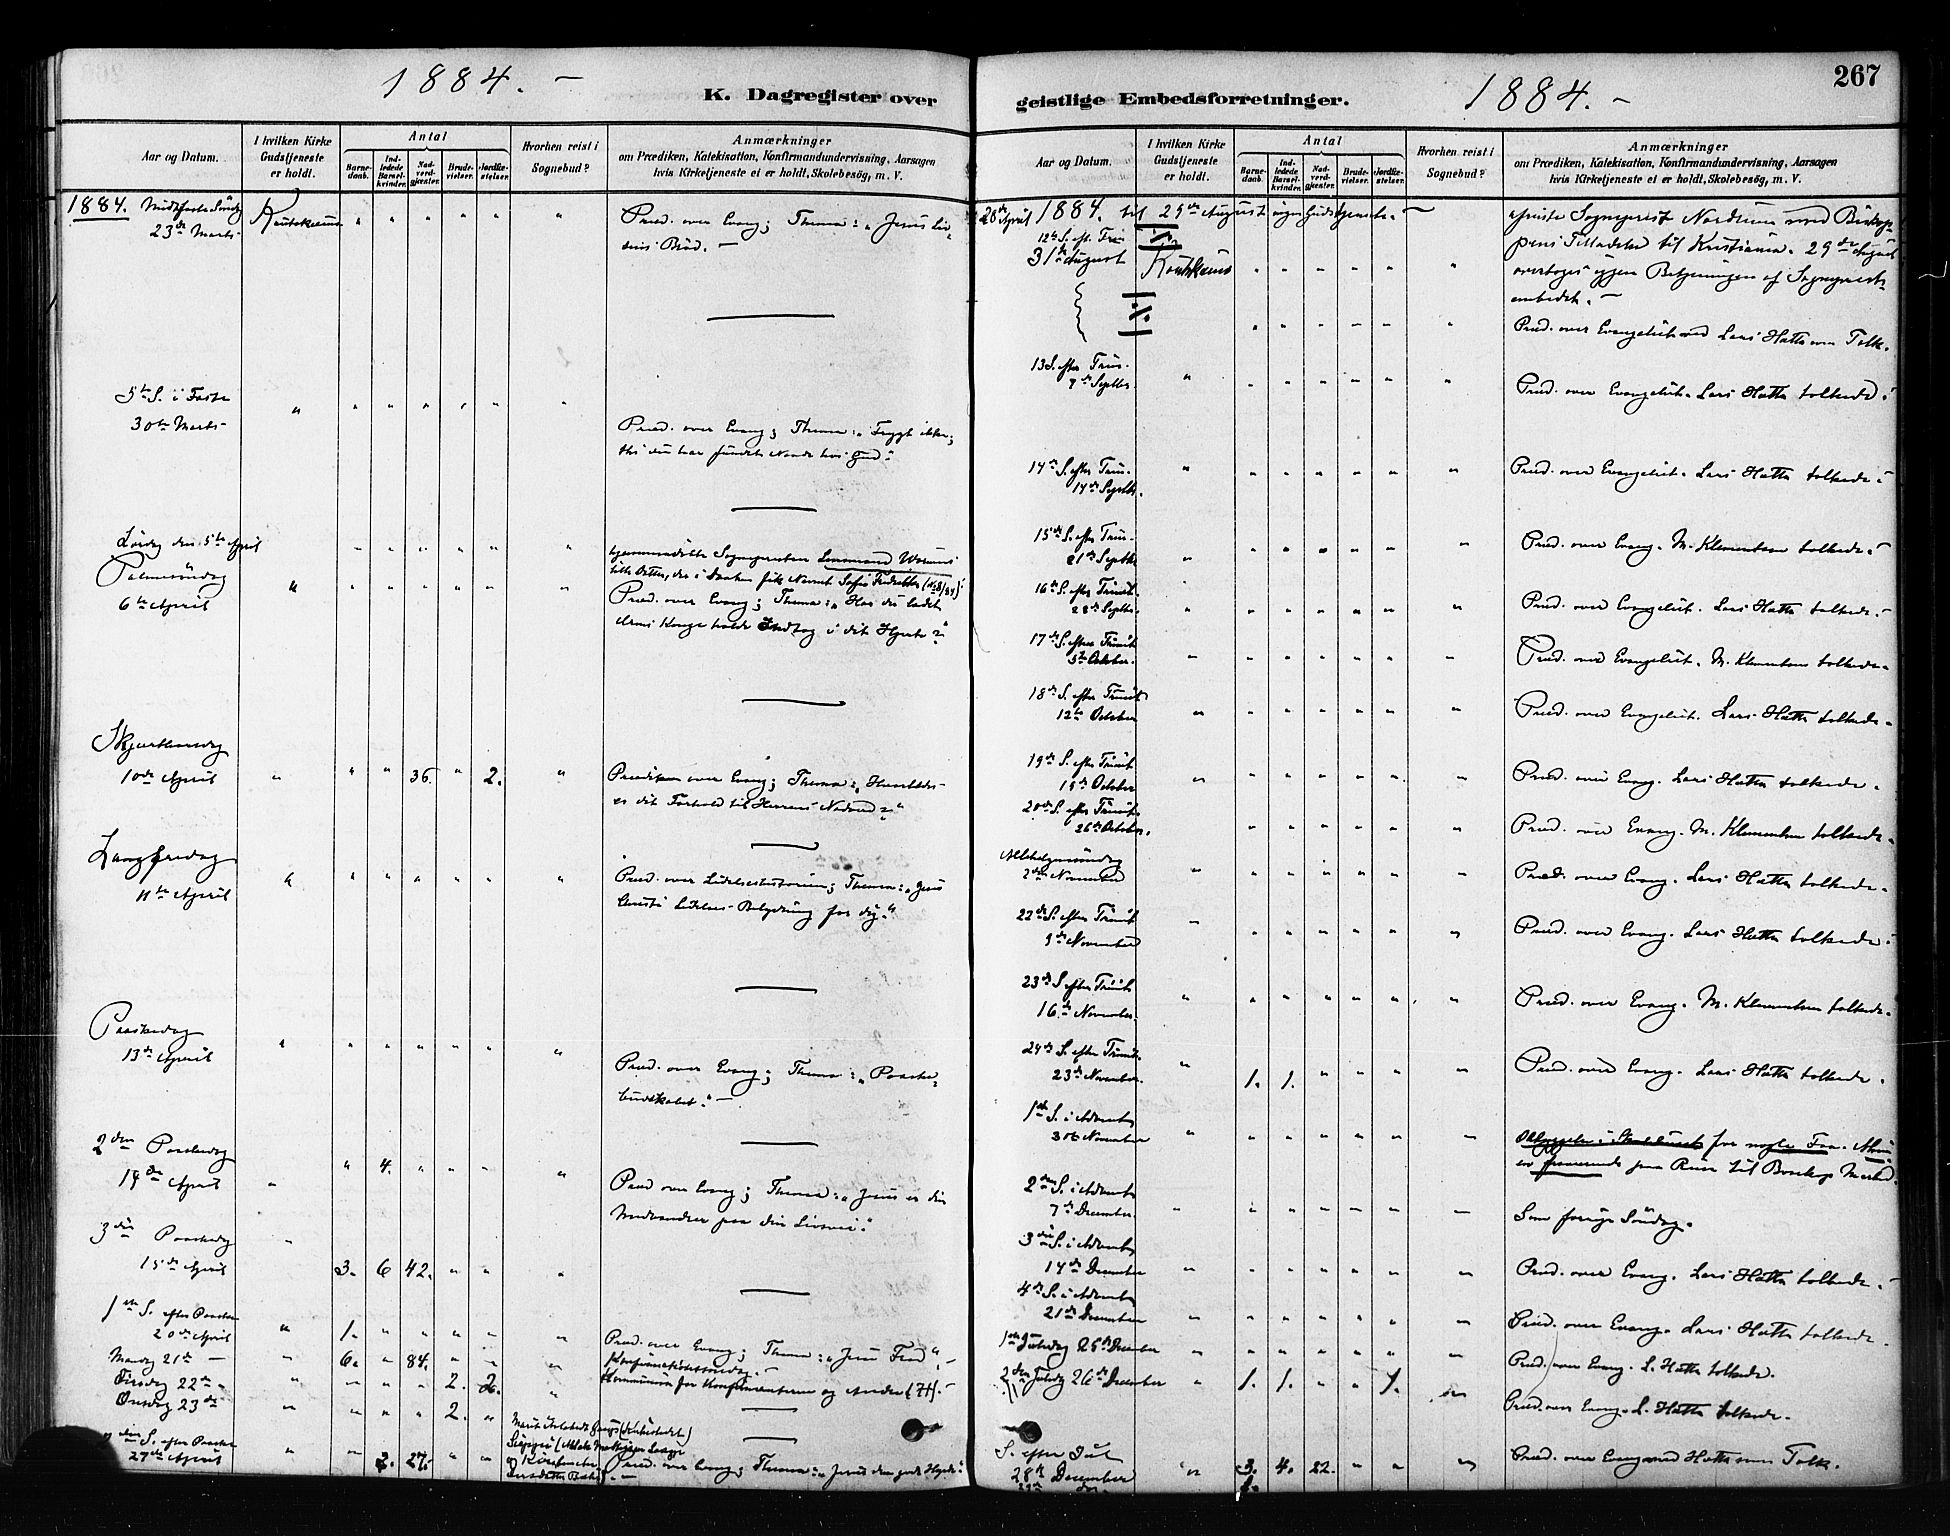 1884. -
K. Dagregister over
Aar og Datum.
I hvilken Kirke Gudstjeneste er holdt.
Antal
Barnedaab.
Indledede Barselkvinder.
Nadverdgjester.
Brudevielser.
Jordfæstelser.
Hvorhen reist i Sognebud?
Anmærkninger
om Prædiken, Katekisation, Konfirmandundervisning, Aarsagen
hvis Kirketjeneste ei er holdt, Skolebesög, m. V.
1884. Midtfaste Söndag
23de Marts Koutokeino " " " " " " Præd. over Evang; Thema: "Jesus Liv-
sens Bröd. -
5te S. i Faste
30te Marts - " " " " " " "
Præd. over Evang; Thema: "Frygt ikke;
thi du har fundet Naade hos Gud."
Lördag den 5te April " " " " " " hjemmedöbte Sognepresten
Palmesöndag
6te April " " " " " " " Præd. over Evang; Thema: "Har du ladet
din Konge holde Indtog i dit Hjerte?"
Skjærthorsdag
10de April " " " 36. " 2. " Prædiken over Evang; Thema: "Hvorledes
er dit Forhold til Herrens Nadverd?"
Langfredag
11te April " " " " " " " Præd. over Lidelseshistorien; Thema: "Jesu
Christi Lidelses Betydning for dig."
Paaskedag
13de April " " " " " " "
Præd. over Evang; Thema: "Paaske-
budskabet." -
2den Paaskedag
14de April " " 4. " " " "
Præd over Evang; Thema: "Jesus er din
Medvandrer paa din Livsvei."
3die Paaskedag
15de April " 3. 6 42. " " "
1ste S. efter Paaske
20de April " 1. " " " " " Præd. over Evang; Thema: "Jesu Fred" -
Mandag 21de - " 6. " 84. " " " Konfirmationssöndag. -
Tirsdag 22de - " " " " 2. 2. " Kommunion for Konfirmanterne og Andre (71). -
Onsdag 23de " " " " 2. "
S. efter Paaske
27de April " " 2. 27. " " Præd. over Evang; Thema: "Jesus den gode Hyrde."
267
geistlige Embedsforretninger.
1884. -
Aar og Datum.
I hvilken Kirke Gudstjeneste er holdt.
Antal
Barnedaab.
Indledede Barselkvinder.
Nadverdgjester.
Brudevielser.
Jordfæstelser.
Hvorhen reist i Sognebud?
Anmærkninger
om Prædiken, Katekisation, Konfirmandundervisning, Aarsagen
hvis Kirketjeneste ei er holdt, Skolebesög, m. V.
28de April 1884. til 29de August ingen Gudstjeneste. -
reiste Sogneprest Nordrum med Biskop-
pens Tilladelse til Kristiania. 29de August
overtoges igjen Betjeningen af Sogneprest-
embedet. -
12te S. eft. Trin
31te August Koutokeino " " " " " "
Præd. over Evangeliet med Lars Hætta som Tolk.
13 S. efter Trin.
7de Septbr. " " " " " " " Præd. over Evangeliet. Lars Hætta tolkede.
14de S. efter Trin.
14de Septbr. " " " " " " " Præd. over Evangeliet. Lars Hætta tolkede.
15de S. efter Trin.
21de Septbr. " " " " " " " Præd. over Evang. M. Klementsen tolkede.
16de S. efter Trinit.
28de Septbr. " " " " " " " Præd. over Evangeliet. Lars Hætta tolkede.
17de S. efter Trinit
5te October. " " " " " " " Præd. over Evangeliet. M. Klementsen tolkede.
18de S. efter Trinit
12te October " " " " " " " Præd. over Evangeliet. Lars Hætta tolkede.
19de S. efter Trinit
19de October " " " " " " " Præd. over Evang. Lars Hætta tolkede.
20de S. efter Trinit.
26de October. " " " " " " Præd. over Evang. M. Klementsen tolkede.
Allehelgensöndag
2den November " " " " " " " Præd. over Evang. Lars Hætta tolkede.
22de S. efter Trinit
9de November " " " " " " " Præd. over Evang. Lars Hætta tolkede.
23de S efter Trinit
16de November. " " " " " " " Præd. over Evang. M. Klementsen tolkede.
24de S. efter Trinit.
23de November. " 1. 1. " " " " Præd. over Evang. Lars Hætta tolkede.
1ste S. i Advent
30te November " " " " " " " for nogle Faa. Almu
en paa Reise til Bosekop Marked.
2den S. i Advent
7de December. " " " " " " " Som forrige Söndag.
3die S. i Advent
14de December " " " " " " " Præd. over Evang. Lars Hætta tolkede.
4de S. i Advent
21de December " " " " " " " Præd. over Evang. Lars Hætta tolkede.
1ste Juledag 25de December " " " " " " " Præd. over Evang. L. Hætta tolkede.
2den Juledag 26de December " 1. 1. " " 1. " Præd. over Evang. L. Hætta tolkede.
S. efter Jul
28de December " 3. 4. 22. " " " Præd. over Evang med Hætta som Tolk.